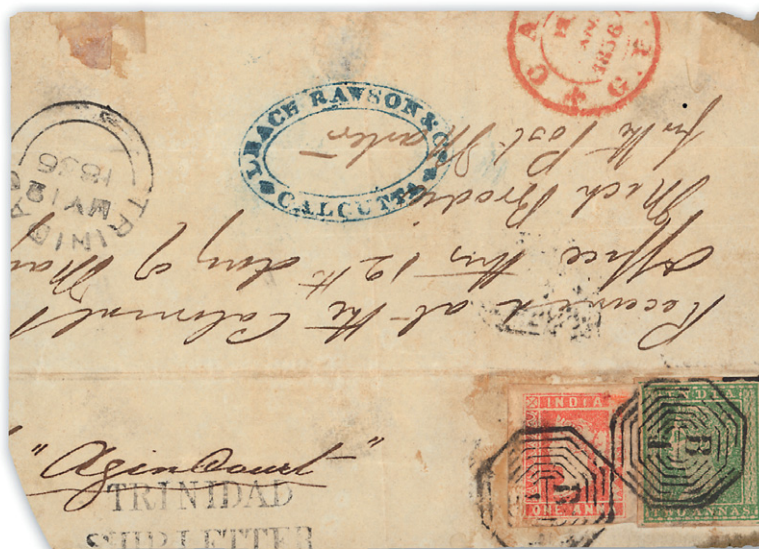 CA
G.P.
1856
LBACH RAWSON & Co
CALCUTTA
TRINIDAD
MY 12
1856
Received at the Colonial
Office this 12th day of May
Mich Brodie
for the Post Master
"Agincourt"
TRINIDAD
SHIP LETTER
INDIA
ONE ANN
B
1
INDIA
TWO ANNAS
B
1